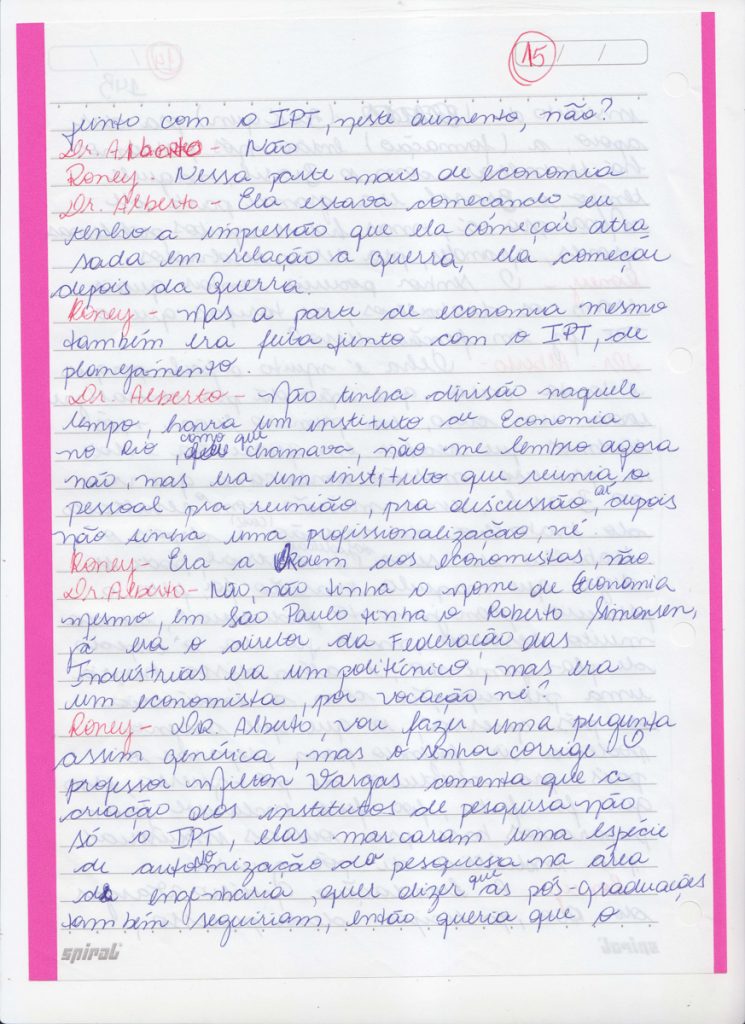 15
junto com o IPT, neste aumento, não?
Dr. Alberto - Não
Roney - Nessa parte mais de economia
Dr. Alberto - Ela estava começando eu
tenho a impressão que ela começou atra
sada em relação a guerra, ela começou
depois da Guerra.
Roney - Mas a parte de economia mesmo
também era feita junto com o IPT, de
planejamento.
Dr. Alberto - Não tinha divisão naquele
tempo, havia um instituto de Economia
no Rio, como que chamava, não me lembro agora
não, mas era um instituto que reunia o
pessoal pra reunião, pra discussão, aí depois
não tinha uma profissionalização, né.
Roney - Era a Ordem dos economistas, não
Dr. Alberto - Não, não tinha o nome de Economia
mesmo, em São Paulo tinha o Roberto Simonsen,
já era o diretor da Federação das
Indústrias era um politécnico, mas era
um economista, por vocação né?
Roney - Dr. Alberto, vou fazer uma pergunta
assim genérica, mas o senhor corrige. O
professor Milton Vargas comenta que a
criação dos institutos de pesquisa não
só o IPT, elas marcaram uma espécie
de autonomização da pesquisa na área
de engenharia, quer dizer que as pós-graduações
também seguiriam, então queria que o
spiral